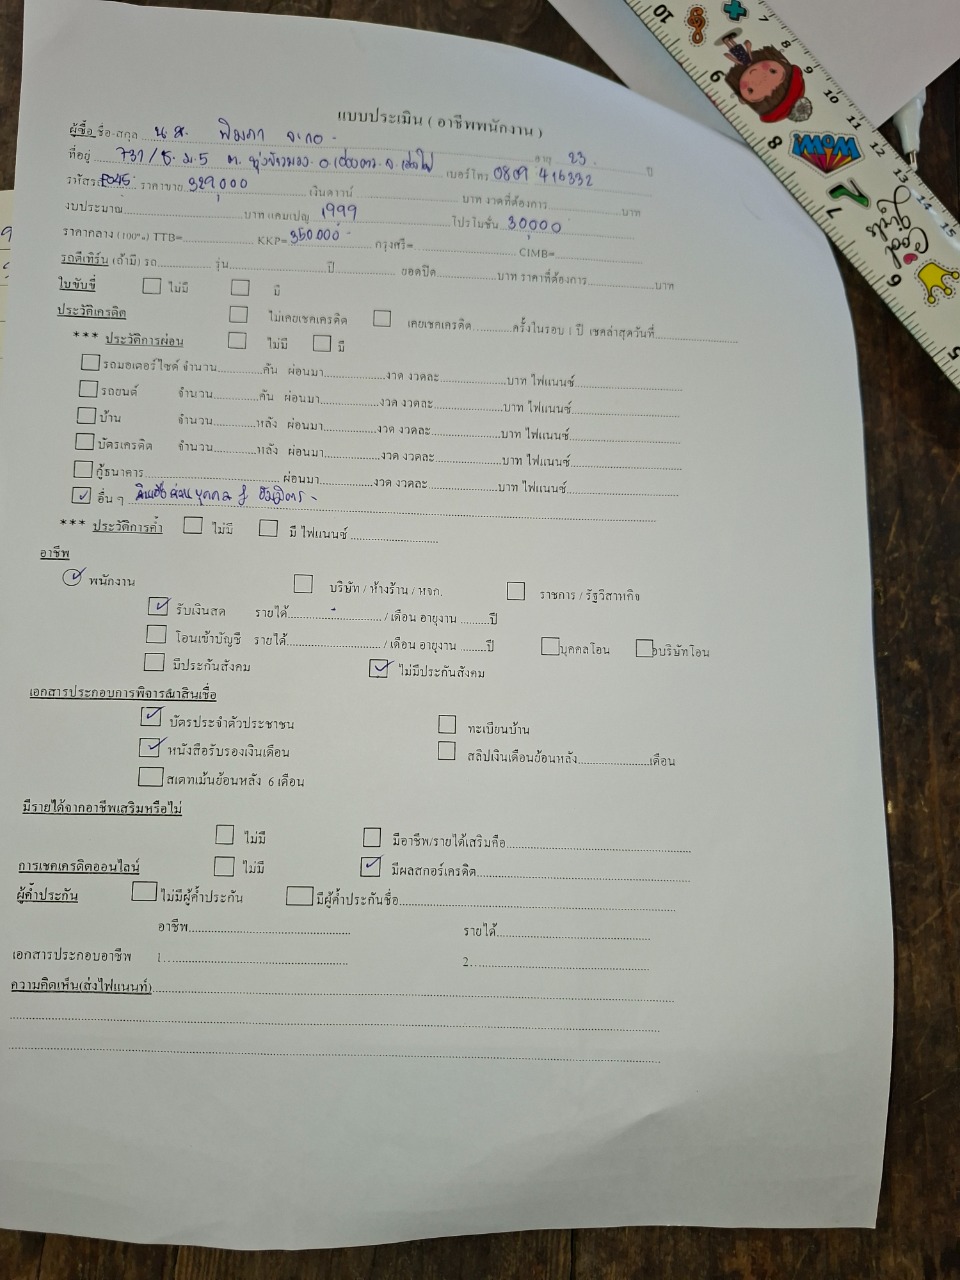 แบบประเมิน ( อาชีพพนักงาน )
ผู้ซื้อ ชื่อ-สกุล น.ส. พิมภา จะกอ อายุ 23 ปี
ที่อยู่ 731/ ม.5 ต. ทุ่งข้าวพวง อ. เชียงดาว จ. เชียงใหม่ เบอร์โทร 0809 416332
รหัสรถ ราคาขาย 329,000 เงินดาวน์ บาท งวดที่ต้องการ บาท
งบประมาณ บาท แคมเปญ 1999 โปรโมชั่น 30000
ราคากลาง (100%) TTB= KKP= 350000 กรุงศรี= CIMB=
รถตีเทิร์น (ถ้ามี) รถ รุ่น ปี ยอดปิด บาท ราคาที่ต้องการ บาท
ใบขับขี่ ไม่มี มี
ประวัติเครดิต ไม่เคยเชคเครดิต เคยเชคเครดิต ครั้งในรอบ 1 ปี เชคล่าสุดวันที่
*** ประวัติการผ่อน ไม่มี มี
รถมอเตอร์ไซค์ จำนวน คัน ผ่อนมา งวด งวดละ บาท ไฟแนนซ์
รถยนต์ จำนวน คัน ผ่อนมา งวด งวดละ บาท ไฟแนนซ์
บ้าน จำนวน หลัง ผ่อนมา งวด งวดละ บาท ไฟแนนซ์
บัตรเครดิต จำนวน หลัง ผ่อนมา งวด งวดละ บาท ไฟแนนซ์
กู้ธนาคาร ผ่อนมา งวด งวดละ บาท ไฟแนนซ์
✓ อื่น ๆ สินเชื่อส่วนบุคคล
*** ประวัติการค้ำ ไม่มี มี ไฟแนนซ์
อาชีพ
✓ พนักงาน บริษัท / ห้างร้าน / หจก. ราชการ / รัฐวิสาหกิจ
✓ รับเงินสด รายได้ / เดือน อายุงาน ปี
โอนเข้าบัญชี รายได้ / เดือน อายุงาน ปี บุคคลโอน บริษัทโอน
มีประกันสังคม ✓ ไม่มีประกันสังคม
เอกสารประกอบการพิจารณาสินเชื่อ
✓ บัตรประจำตัวประชาชน ทะเบียนบ้าน
✓ หนังสือรับรองเงินเดือน สลิปเงินเดือนย้อนหลัง เดือน
สเตทเม้นย้อนหลัง 6 เดือน
มีรายได้จากอาชีพเสริมหรือไม่
ไม่มี มีอาชีพ/รายได้เสริมคือ
การเชคเครดิตออนไลน์ ไม่มี ✓ มีผลสกอร์เครดิต
ผู้ค้ำประกัน ไม่มีผู้ค้ำประกัน มีผู้ค้ำประกันชื่อ
อาชีพ รายได้
เอกสารประกอบอาชีพ 1. 2.
ความคิดเห็น(ส่งไฟแนนท์)